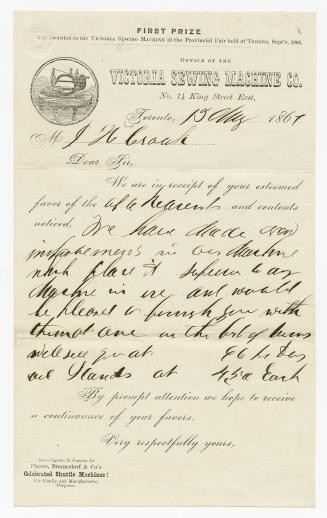 FIRST PRIZE
Was awarded to the VICTORIA SEWING MACHINE at the Provincial Fair held at Toronto, Sept'r, 1866.
OFFICE OF THE
VICTORIA SEWING MACHINE CO.
No. 14 King Street East,
Toronto, 13 Aug 1867
M J H Cronk
Dear Sir,
We are in receipt of your esteemed
favor of the and contents
noticed, We have Made
improvements in our Machine
which place it Superior to any
Machine in use and would
be pleased to furnish you with
them at once on the best of terms
will sell you at
and Stands at Each
By prompt attention we hope to receive
a continuance of your favors.
Very respectfully yours,
Sole Agents in Canada for
Planer, Braunsdorf & Co's
Celebrated Shuttle Machines!
For Family and Manufacturing
Purposes.